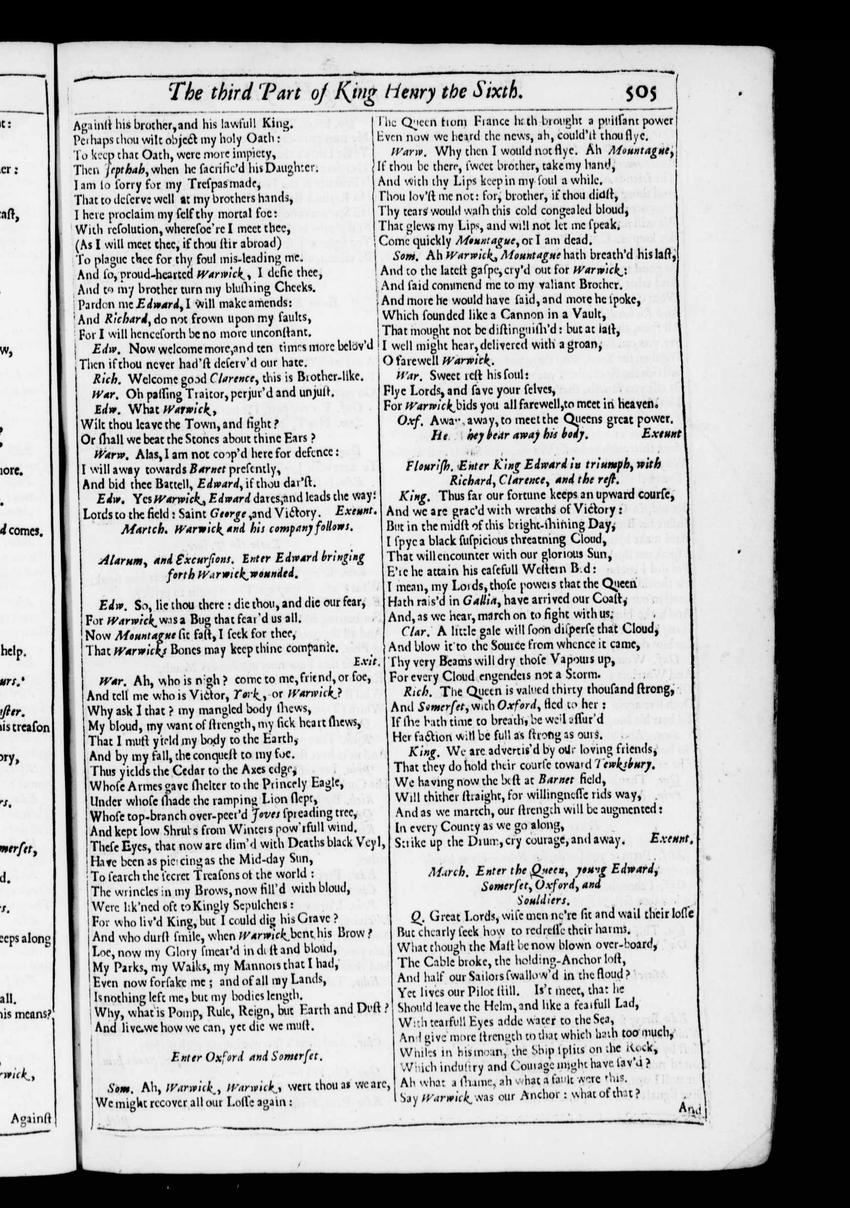 The third Part of King Henry the Sixth. 505
Againſt his brother, and his lawfull King.
Perhaps thou wilt object my holy Oath:
To keep that Oath, were more impiety,
Then Jepthah, when he ſacrific'd his Daughter.
I am ſo ſorry for my Treſpas made,
That to deſerve well at my brothers hands,
I here proclaim my ſelf thy mortal foe:
With reſolution, whereſoe're I meet thee,
(As I will meet thee, if thou ſtir abroad)
To plague thee for thy foul mis-leading me.
And ſo, proud-hearted Warwick, I defie thee,
And to my brother turn my bluſhing Cheeks.
Pardon me Edward, I will make amends:
And Richard, do not frown upon my faults,
For I will henceforth be no more unconſtant.
Edw. Now welcome more, and ten times more belov'd
Then if thou never had'ſt deſerv'd our hate.
Rich. Welcome good Clarence, this is Brother-like.
War. Oh paſſing Traitor, perjur'd and unjuſt.
Edw. What Warwick,
Wilt thou leave the Town, and fight?
Or ſhall we beat the Stones about thine Ears?
Warw. Alas, I am not coop'd here for defence:
I will away towards Barnet preſently,
And bid thee Battell, Edward, if thou dar'ſt.
Edw. Yes Warwick, Edward dares, and leads the way:
Lords to the field: Saint George, and Victory. Exeunt.
Martch. Warwick and his company follows.
Alarum, and Excurſions. Enter Edward bringing
forth Warwick wounded.
Edw. So, lie thou there: die thou, and die our fear,
For Warwick was a Bug that fear'd us all.
Now Mountague ſit faſt, I ſeek for thee,
That Warwicks Bones may keep thine companie.
Exit.
War. Ah, who is nigh? come to me, friend, or foe,
And tell me who is Victor, York, or Warwick?
Why ask I that? my mangled body ſhews,
My bloud, my want of ſtrength, my ſick heart ſhews,
That I muſt yield my body to the Earth,
And by my fall, the conqueſt to my foe.
Thus yields the Cedar to the Axes edge,
Whoſe Armes gave ſhelter to the Princely Eagle,
Under whoſe ſhade the ramping Lion ſlept,
Whoſe top-branch over-peer'd Joves ſpreading tree,
And kept low Shrubs from Winters pow'rfull wind.
Theſe Eyes, that now are dim'd with Deaths black Veyl,
Have been as piercing as the Mid-day Sun,
To ſearch the ſecret Treaſons of the world:
The wrincles in my Brows, now fill'd with bloud,
Were lik'ned oft to Kingly Sepulchers:
For who liv'd King, but I could dig his Grave?
And who durſt ſmile, when Warwick bent his Brow?
Loe, now my Glory ſmear'd in duſt and bloud,
My Parks, my Walks, my Mannors that I had,
Even now forſake me; and of all my Lands,
Is nothing left me, but my bodies length.
Why, what is Pomp, Rule, Reign, but Earth and Duſt?
And live we how we can, yet die we muſt.
Enter Oxford and Somerſet.
Som. Ah, Warwick, Warwick, wert thou as we are,
We might recover all our Loſſe again:
The Queen from France hath brought a puiſſant power
Even now we heard the news, ah, could'ſt thou flye.
Warw. Why then I would not flye. Ah Mountague,
If thou be there, ſweet brother, take my hand,
And with thy Lips keep in my ſoul a while.
Thou lov'ſt me not: for, brother, if thou didſt,
Thy tears would waſh this cold congealed bloud,
That glews my Lips, and will not let me ſpeak.
Come quickly Mountague, or I am dead.
Som. Ah Warwick, Mountague hath breath'd his laſt,
And to the lateſt gaſpe, cry'd out for Warwick:
And ſaid commend me to my valiant Brocher.
And more he would have ſaid, and more he ſpoke,
Which ſounded like a Cannon in a Vault,
That mought not be diſtinguiſh'd: but at laſt,
I well might hear, delivered with a groan,
O farewell Warwick.
War. Sweet reſt his ſoul:
Flye Lords, and ſave your ſelves,
For Warwick bids you all farewell, to meet in heaven.
Oxf. Away, away, to meet the Queens great power.
He hey bear away his body. Exeunt
Flouriſh. Enter King Edward in triumph, with
Richard, Clarence, and the reſt.
King. Thus far our fortune keeps an upward courſe,
And we are grac'd with wreaths of Victory:
But in the midſt of this bright-ſhining Day,
I ſpye a black ſuſpicious threatning Cloud,
That will encounter with our glorious Sun,
E're he attain his eaſefull Weſtern Bed:
I mean, my Lords, thoſe powers that the Queen
Hath rais'd in Gallia, have arrived our Coaſt,
And, as we hear, march on to fight with us.
Clar. A little gale will ſoon diſperſe that Cloud,
And blow it to the Source from whence it came,
Thy very Beams will dry thoſe Vapours up,
For every Cloud engenders not a Storm.
Rich. The Queen is valued thirty thouſand ſtrong,
And Somerſet, with Oxford, fled to her:
If ſhe hath time to breath, be well aſſur'd
Her faction will be full as ſtrong as ours.
King. We are advertis'd by our loving friends,
That they do hold their courſe toward Tewksbury.
We having now the beſt at Barnet field,
Will thither ſtraight, for willingneſſe rids way,
And as we martch, our ſtrength will be augmented:
In every County as we go along,
Strike up the Drum, cry courage, and away. Exeunt.
March. Enter the Queen, young Edward,
Somerſet, Oxford, and
Souldiers.
Q. Great Lords, wiſe men ne're ſit and wail their loſſe
But chearly ſeek how to redreſſe their harms.
What though the Maſt be now blown over-board,
The Cable broke, the holding-Anchor loſt,
And half our Sailors ſwallow'd in the floud?
Yet lives our Pilot ſtill. Is't meet, that he
Should leave the Helm, and like a fearfull Lad,
With tearfull Eyes adde water to the Sea,
And give more ſtrength to that which hath too much,
Whiles in his moan, the Ship ſplits on the Rock,
Which induſtry and Courage might have ſav'd?
Ah what a ſhame, ah what a fault were this.
Say Warwick was our Anchor: what of that?
And